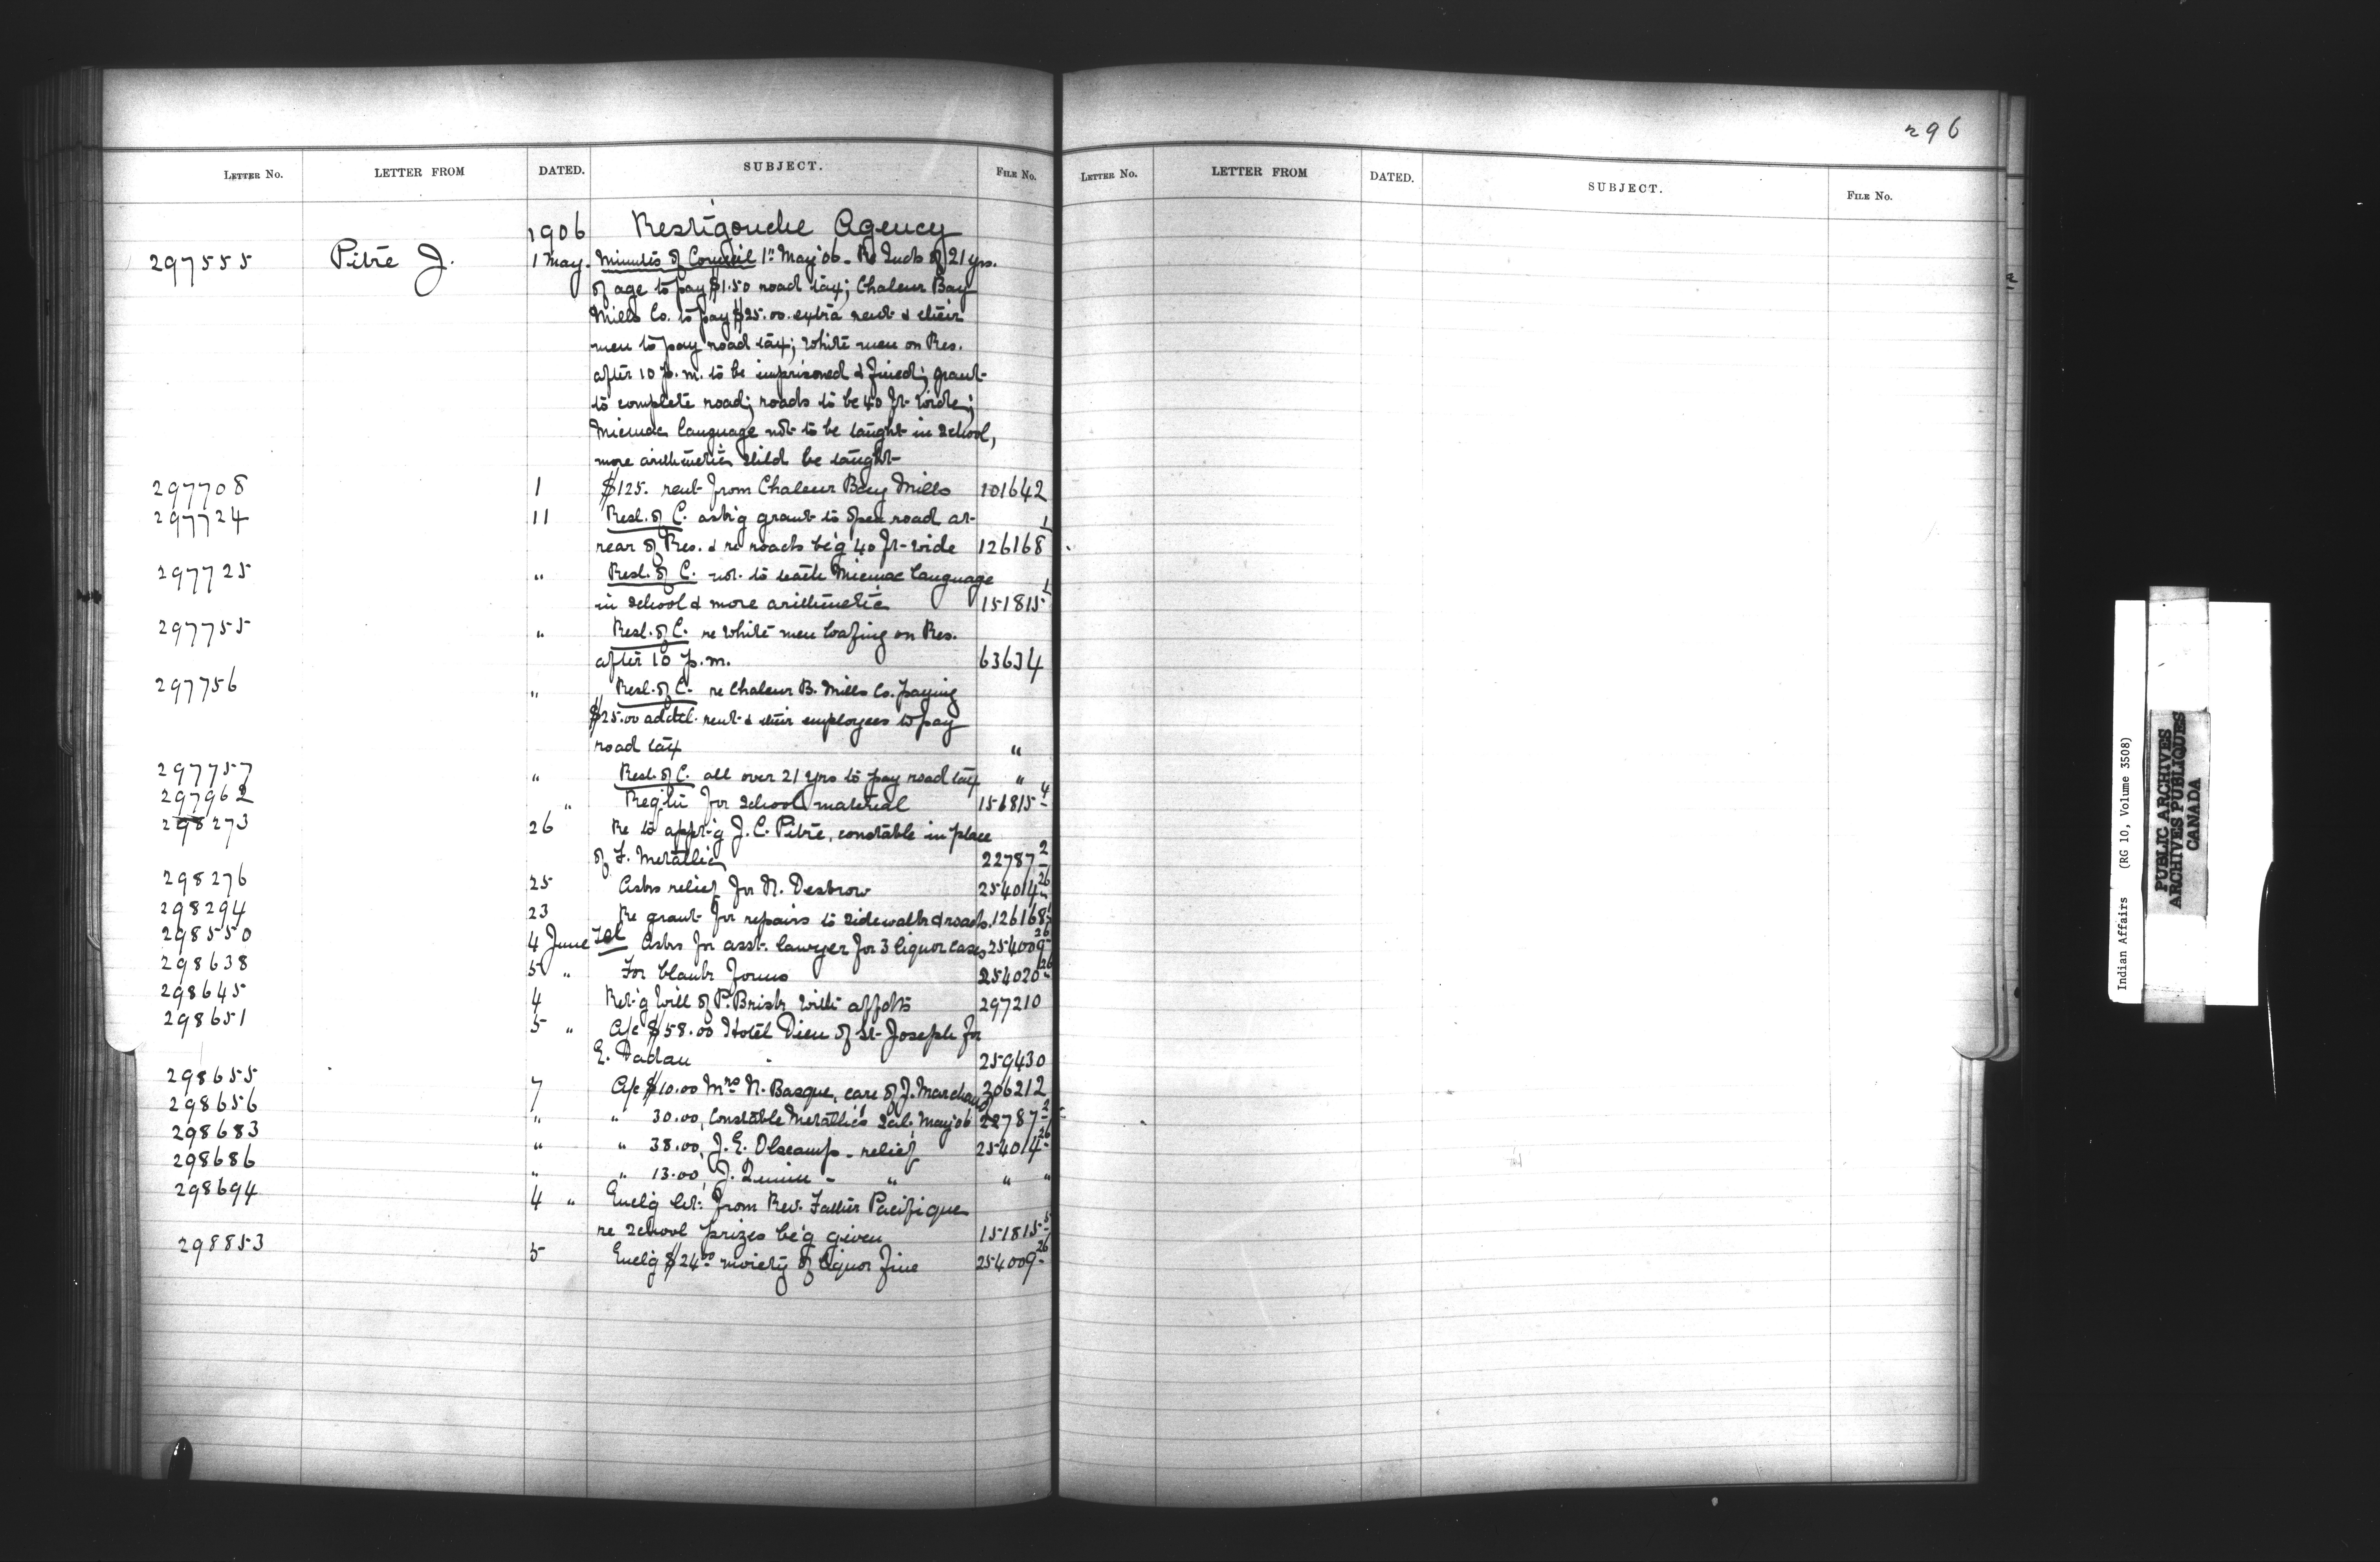 296
LETTER No. LETTER FROM DATED. SUBJECT. FILE No.
LETTER No. LETTER FROM DATED. SUBJECT. FILE No.
1906 Restigouche Agency
297555 Pitre J. 1 May. Minutes of Council 1st May '06 - Re Inds of 21 yrs.
of age to pay $1.50 road tax; Chaleur Bay
Mills Co. to pay $25.00 extra rent & their
men to pay road tax; White men on Res.
after 10 p.m. to be imprisoned & fined; grant
to complete road; roads to be 40 ft wide;
Micmac language not to be taught in School,
more arithmetic shld be taught
297708 1 $125. rent from Chaleur Bay Mills 101642
297724 11 Resl. of C. ask'g grant to open road at
rear of Res. & re roads be'g 40 ft wide 126168 1
297725 " Resl. of C. not to teach Micmac language
in School & more arithmetic 151815 1
297755 " Resl. of C. re White men loafing on Res.
after 10 p.m. 63634
297756 " Resl. of C. re Chaleur B. Mills Co. paying
$25.00 addtl. rent & their employees to pay
road tax "
297757 " Resl. of C. all over 21 yrs to pay road tax "
297962 " Req'tn for School material 156815 4
298273 26 Re to appt'g J. C. Pitre, constable in place
of F. Metallic 22787 2
298276 25 Asks relief for N. Desbrow 254014 26
298294 23 Re grant for repairs to sidewalk & roads. 126168 1
298550 4 June Tel Asks for asst. lawyer for 3 liquor cases 254009 26
298638 5 " For blank forms 254020 26
298645 4 Ret'g Will of P. Brisk with affdts 297210
298651 5 " A/c $58.00 Hotel Dieu of St. Joseph for
E. Dadau 259430
298655 7 A/c $10.00 Mrs N. Basque, care of J. Marchand 306212
298656 " " 30.00, Constable Metallic's Sal. May '06 22787 2
298683 " " 38.00, J. E. Olscamp - relief 254014 26
298686 " " 13.00, J. - " " "
298694 4 " Encl'g let. from Rev. Father Pacifique
re School prizes be'g given 151815 5
298853 5 Encl'g $24.00 moiety of liquor fine 254009 26
Indian Affairs (RG 10, Volume 3508)
PUBLIC ARCHIVES
ARCHIVES PUBLIQUES
CANADA